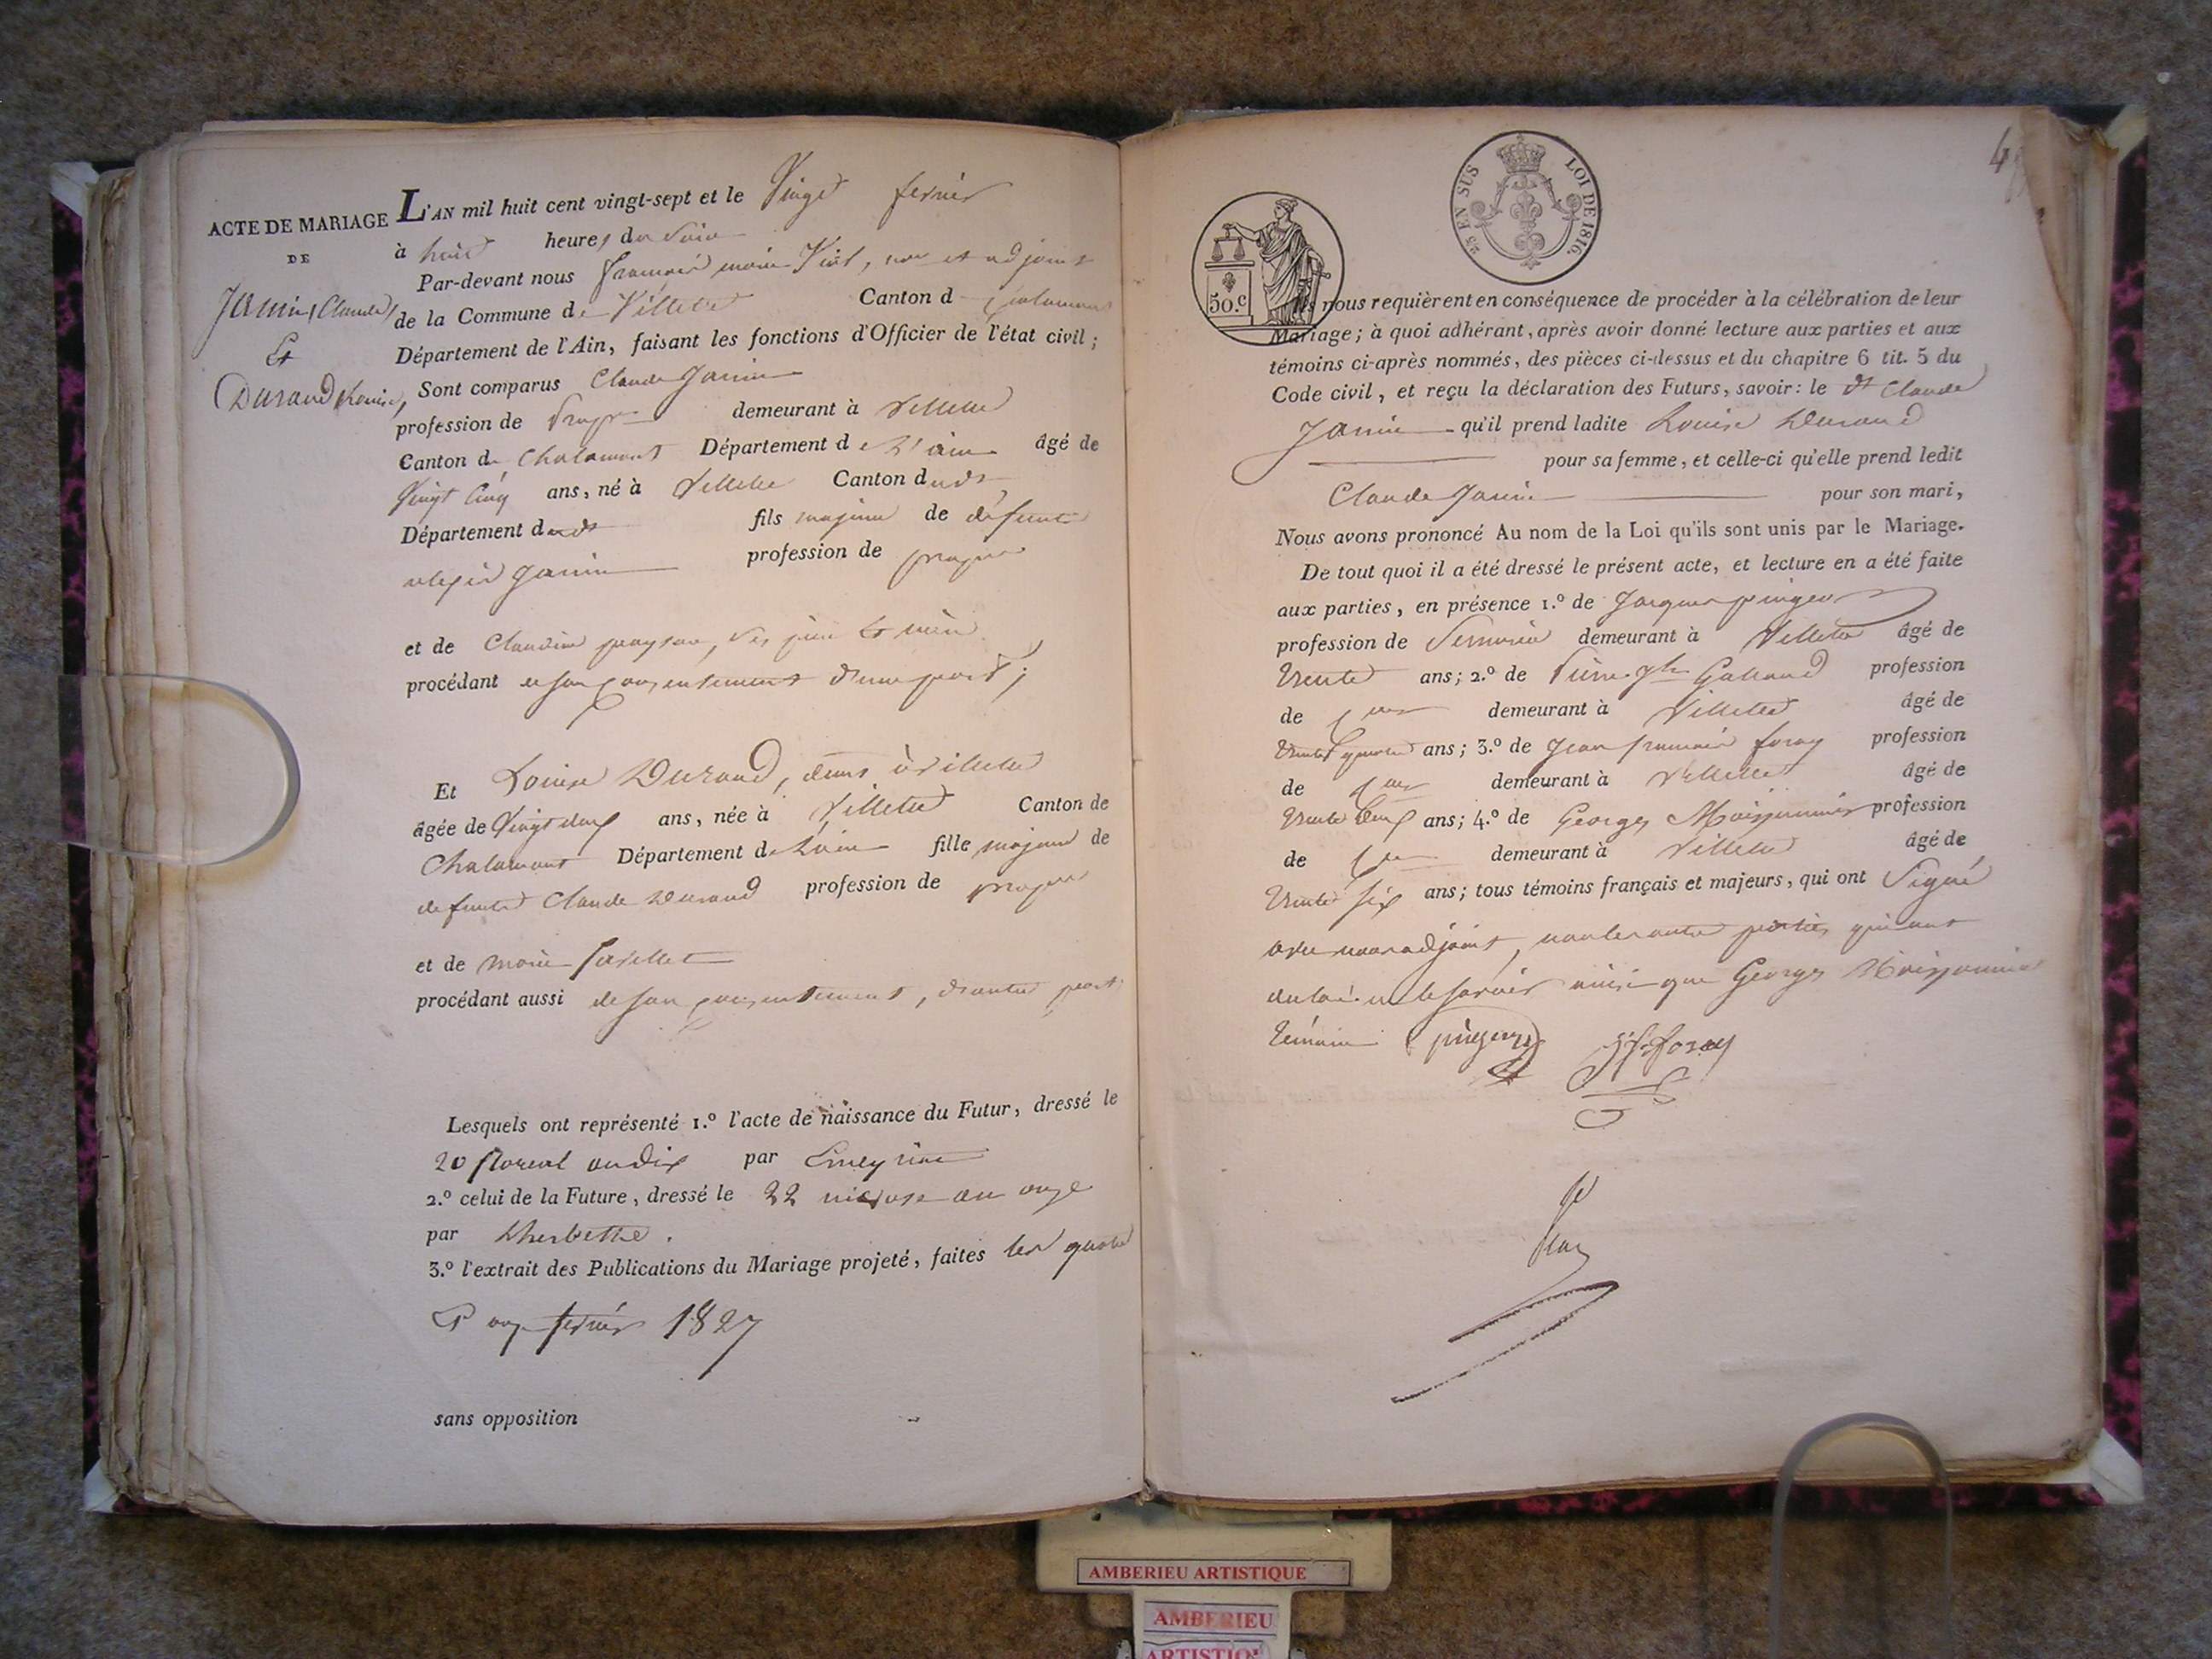 ACTE DE MARIAGE
DE
Janin (Claude)
Et
Durand Louise,
L'AN mil huit cent vingt-sept et le Vingt fevrier
à huit heures du Soir
Par-devant nous françois marie, et adjoint
de la Commune de Villette Canton d Chalamont
Département de l'Ain, faisant les fonctions d'Officier de l'état civil;
Sont comparus Claude Janin
profession de Propre demeurant à Villette
Canton de Chalamont Département de L'ain âgé de
Vingt Cinq ans, né à Villette Canton dudt
Département dudt fils majeur de défunt
Janin profession de propre
et de Claudine, ses père & mère
procédant de son consentement d'une part;
Et Louise Durand, demt à Villette
âgée de Vingt deux ans, née à Villette Canton de
Chalamont Département de L'ain fille majeure de
defunt Claude Durand profession de propre
et de marie
procédant aussi de son consentement, d'autre part;
Lesquels ont représenté 1.º l'acte de naissance du Futur, dressé le
20 floreal an dix par
2.º celui de la Future, dressé le 22 nivose an onze
par Dherbette.
3.º l'extrait des Publications du Mariage projeté, faites les quatre
& onze fevrier 1827
sans opposition
4
25 EN SUS LOI DE 1816.
50.c
Ils nous requièrent en conséquence de procéder à la célébration de leur
Mariage; à quoi adhérant, après avoir donné lecture aux parties et aux
témoins ci-après nommés, des pièces ci-dessus et du chapitre 6 tit. 5 du
Code civil, et reçu la déclaration des Futurs, savoir: le dt Claude
Janin qu'il prend ladite Louise Durand
pour sa femme, et celle-ci qu'elle prend ledit
Claude Janin pour son mari,
Nous avons prononcé Au nom de la Loi qu'ils sont unis par le Mariage.
De tout quoi il a été dressé le présent acte, et lecture en a été faite
aux parties, en présence 1.º de Jacques pingeon
profession de demeurant à Villette âgé de
trente ans; 2.º de Pierre Jh Galland profession
de demeurant à Villette âgé de
trente quatre ans; 3.º de Jean francois foray profession
de demeurant à Villette âgé de
trente deux ans; 4.º de Georges Moissonnier profession
de demeurant à Villette âgé de
trente six ans; tous témoins français et majeurs, qui ont Signé
avec nous adjoint, non les autres parties qui ont
declaré ne le savoir ainsi que Georges Moissonnier
témoin pingeon jf foray